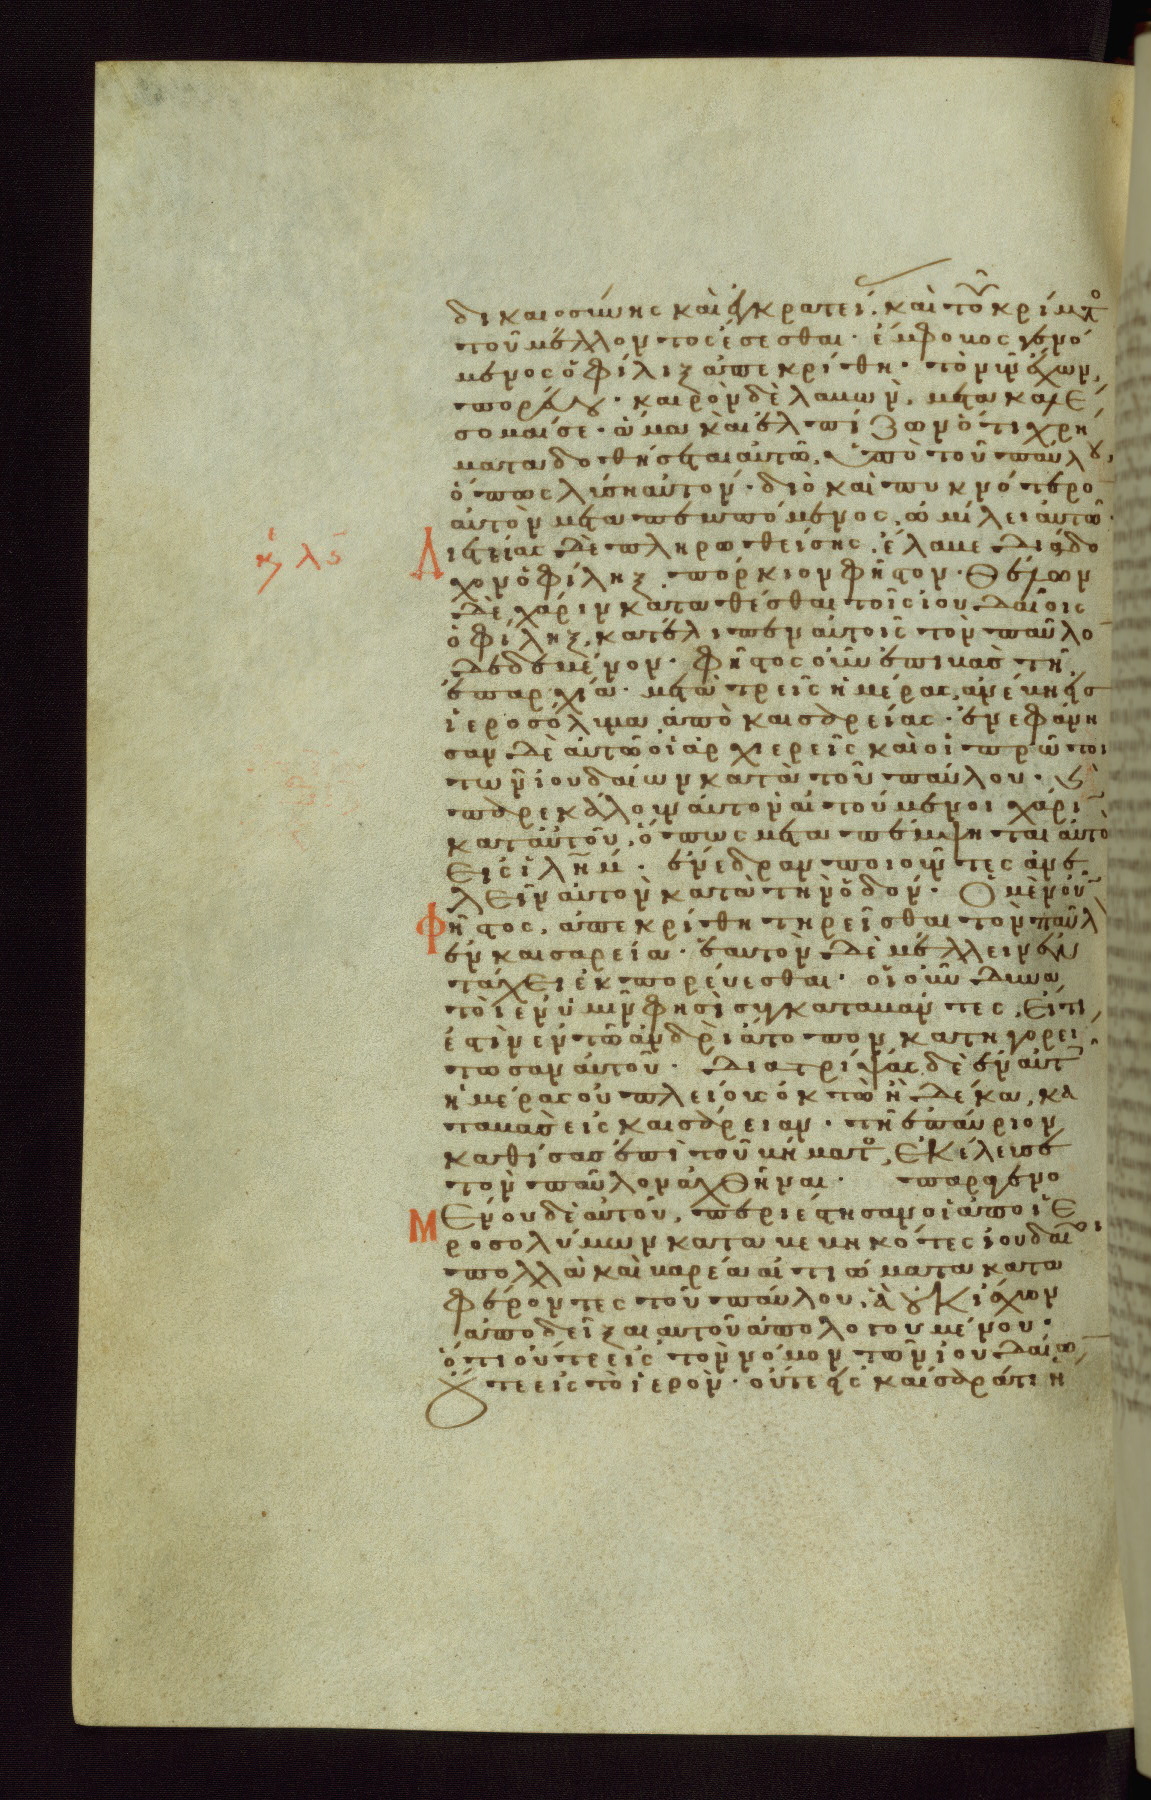 δικαιοσύνης καὶ ἐγκρατεί. καὶ τοῦ κρίματ
τοῦ μέλλοντος ἔσεσθαι· ἔμφοβος γενό
μενος ὁ φίλιξ ἀπεκρίθη· τὸ νῦν ἔχων,
πορεύου· καιρὸν δὲ λαβὼν, μετακαλέ
σομαί σε· ἅμα καὶ ἐλπίζων ὅτι χρή
ματα δοθήσεται αὐτῶ, ὑπὸ τοῦ παύλου,
ὅπως λύση αὐτόν· διὸ καὶ πυκνότερο
αὐτὸν μεταπεμπόμενος, ὡμίλει αὐτῶ·
κε λϛ Διετίας δὲ πληρωθείσης, ἔλαβε διάδο
χον ὁ φίληξ πόρκιον φῆστον· θέλων
δὲ χάριν καταθέσθαι τοῖς ἰουδαίοις
ὁ φίληξ, κατέλιπεν αὐτοῖς τὸν παῦλο
δεδεμένον· φῆστος οὖν ἐπιβὰς τῆ
ἐπαρχία· μετὰ τρεῖς ἡμέρας, ἀνέβη εἰσ
ἱεροσόλυμα ἀπὸ καισαρείας· ἐνεφάνη
σαν δὲ αὐτῶ οἱ ἀρχιερεῖς καὶ οἱ πρῶτοι
τῶν ἰουδαίων κατὰ τοῦ παύλου· καὶ
παρεκάλουν αὐτὸν αἰτούμενοι χάρι
κατ αὐτοῦ, ὅπως μεταπέμψηται αὐτὸ
εἰς ἰλῆμ· ἐνέδραν ποιοῦντες ἀνε
λεῖν αὐτὸν κατὰ τὴν ὁδόν· Ὁ μὲν οὖ
Φῆστος, ἀπεκρίθη τηρεῖσθαι τὸν παῦλ
ἐν καισαρεία· ἑαυτὸν δὲ μέλλειν ἐν
τάχει ἐκπορεύεσθαι· οἱ οὖν δυνα
τοὶ ἐν ὑμῖν φησὶ συγκαταβάντες, εἴ τι
ἐστὶν ἐν τῶ ἀνδρὶ ἄτοπον κατηγορεί
τωσαν αὐτοῦ· διατρίψας δὲ ἐν αὐτ
ἡμέρας οὐ πλείους ὀκτὼ ἢ δέκα, κα
ταβὰς εἰς καισάρειαν· τῆ ἐπαύριον
καθίσας ἐπὶ τοῦ βήματ, ἐκέλευσε
τὸν παῦλον ἀχθῆναι· παραγενο
Μένου δὲ αὐτοῦ, περιέστησαν οἱ ἀπο ἱε
ροσολύμων καταβεβηκότες ἰουδαῖοι
πολλὰ καὶ βαρέα αἰτιώματα κατα
φέροντες τοῦ παύλου, ἃ οὐκ ἴσχυον
ἀποδεῖξαι αὐτοῦ ἀπολογουμένου·
ὅτι οὔτε εἰς τὸν νόμον τῶν ἰουδαίω
οὔτε εἰς τὸ ἱερόν· οὔτε εἰς καίσαρά τι ἥ